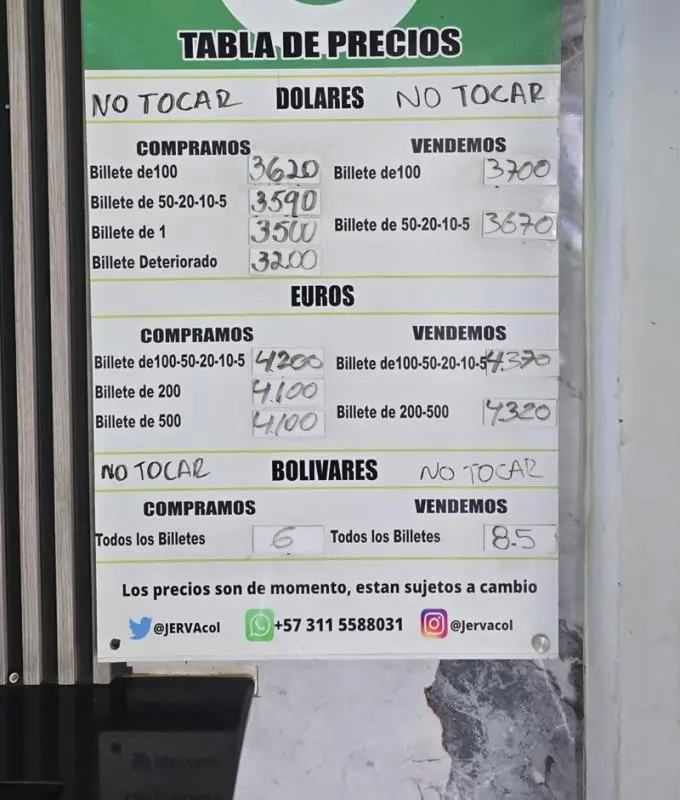 TABLA DE PRECIOS
NO TOCAR DOLARES NO TOCAR
COMPRAMOS VENDEMOS
Billete de100 3620 Billete de100 3700
Billete de 50-20-10-5 3590 Billete de 50-20-10-5 3670
Billete de 1 3500
Billete Deteriorado 3200
EUROS
COMPRAMOS VENDEMOS
Billete de100-50-20-10-5 4.200 Billete de100-50-20-10-5 4.370
Billete de 200 4.100
Billete de 500 4.100 Billete de 200-500 4.320
NO TOCAR BOLIVARES NO TOCAR
COMPRAMOS VENDEMOS
Todos los Billetes 6 Todos los Billetes 8.5
Los precios son de momento, estan sujetos a cambio
@JERVAcol +57 311 5588031 @Jervacol